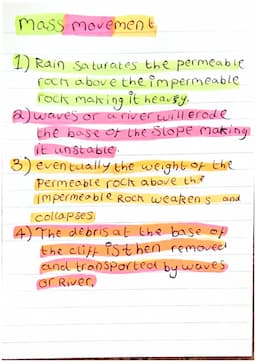 mass movement
1) Rain saturates the permeable
rock above the impermeable
rock making it heavy.
2) waves or a river will erode
the base of the slope making
it unstable.
3) eventually the weight of the
Permeable rock above the
impermeable Rock weakens and
collapses
4) The debris at the base of
the cliff is then removed
and transported by waves
or River.